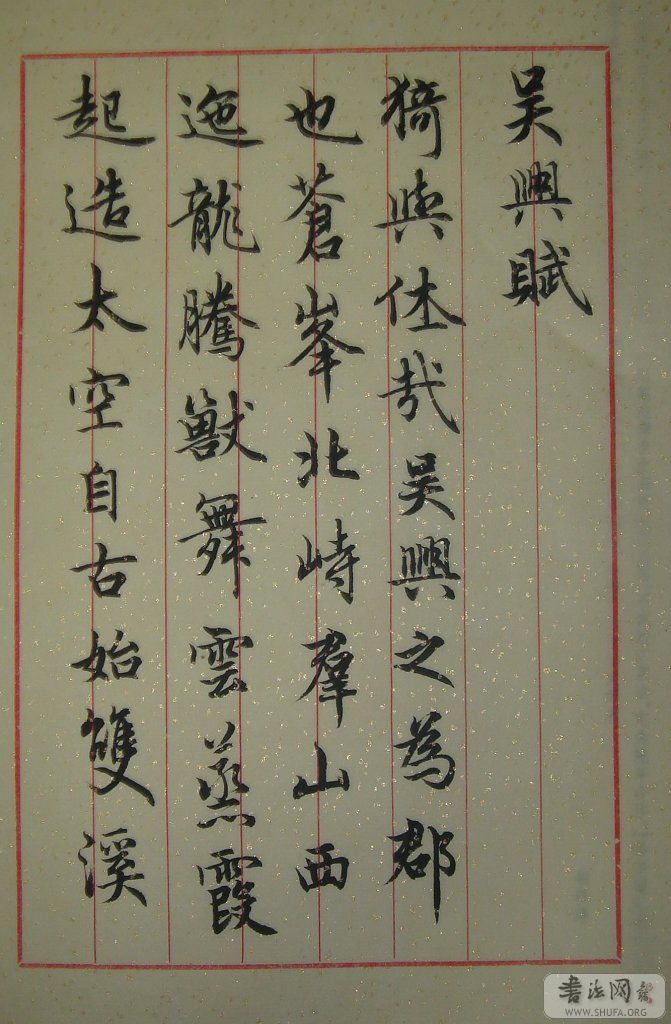 吳興賦
猗與休哉吳興之為郡
也蒼峯北峙羣山西
迤龍騰獸舞雲蒸霞
起造太空自古始雙溪
書法网
WWW.SHUFA.ORG